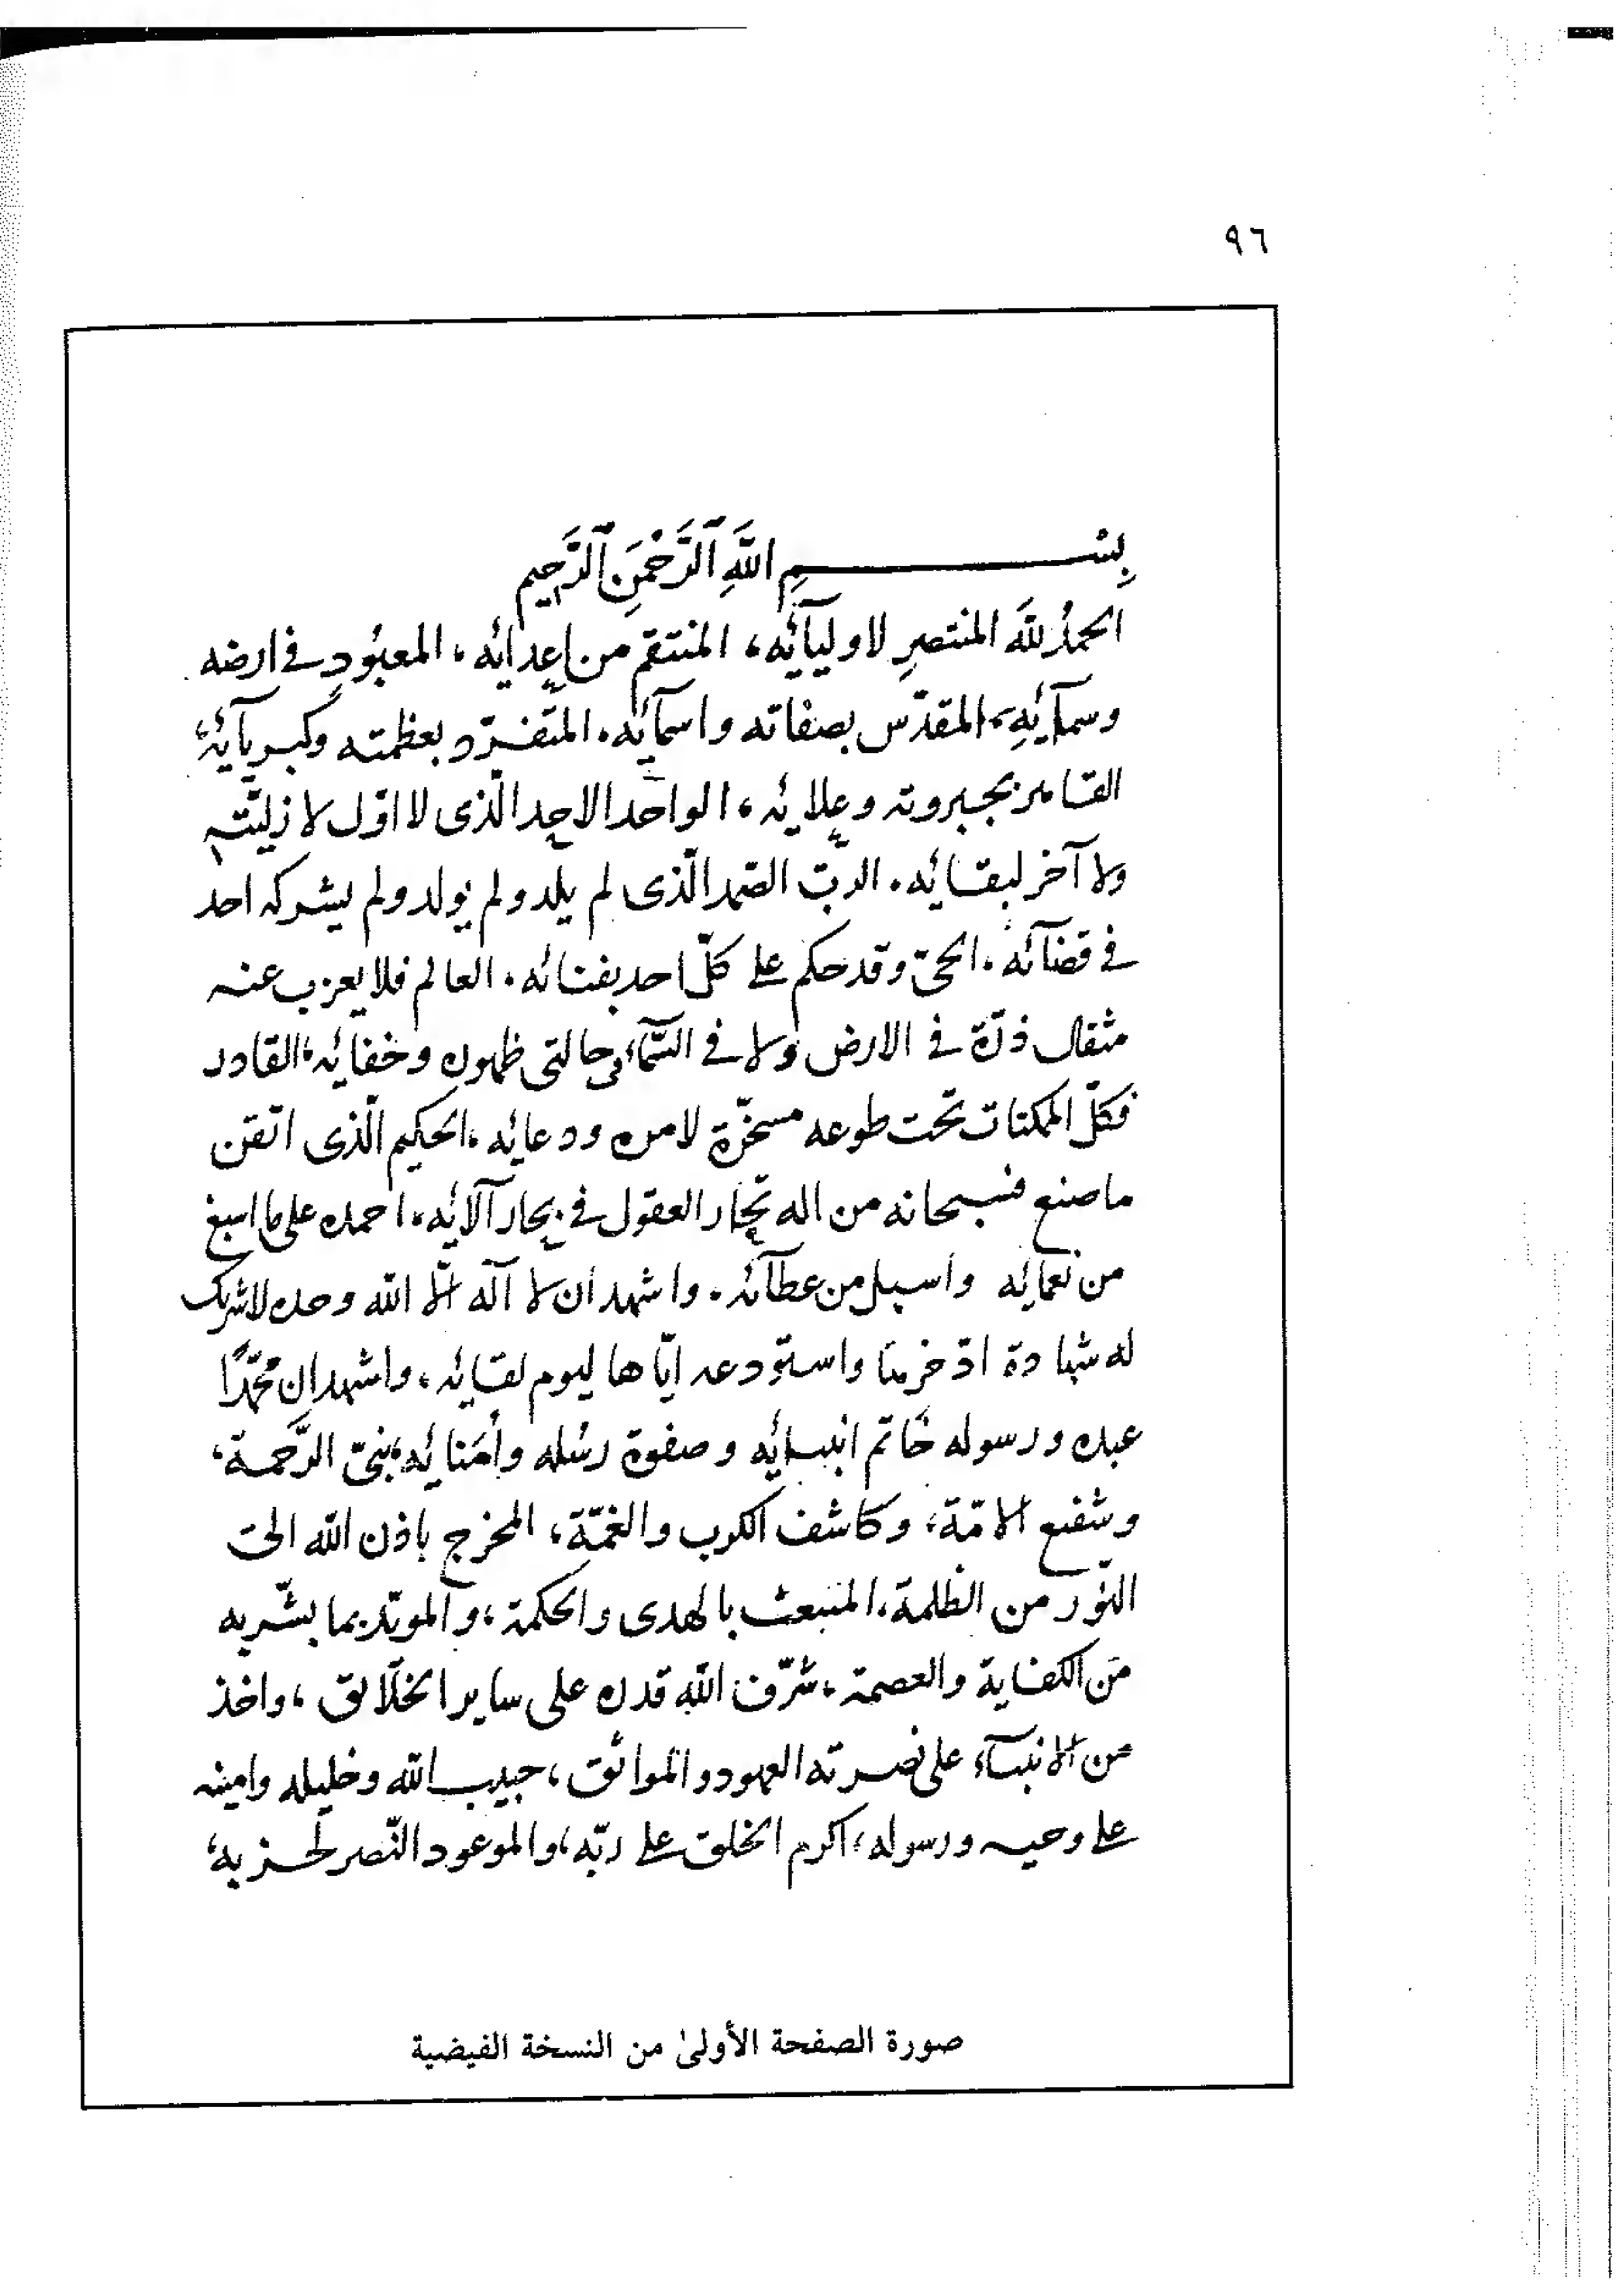 ٩٦
بِسْمِ اللَّهِ الرَّحْمَنِ الرَّحِيم
الحمدُ للَّه المنتصرِ لاوليآئه، المنتقم من اعدائه، المعبُودِ في ارضه
وسمآئِهِ، المقدّس بصفاته واسمآئه، المتفرّد بعظمته وكبريآئه،
القاهر بجبروته وعلائه، الواحد الاحد الّذى لا اوّل لازليّته
ولا آخر لبقائه، الربّ الصّمد الّذى لم يلد ولم يولد ولم يشركه احد
في قضآئه، الحىّ وقد حكم على كلّ احد بفنائه، العالم فلا يعزب عنه
مثقال ذرّة في الارض ولا في السّمآء في حالتى ظهوره وخفائه، القادر
فكلّ الممكنات تحت طوعه مسخّرة لامره ودعائه، الحكيم الّذى اتقن
ما صنع فسبحانه من اله تحار العقول في بحار آلائه، احمده على ما اسبغ
من نعمائه واسبل من عطآئه، واشهد ان لا آله الّا الله وحده لا شريك
له شهادة ادّخرها واستودعه ايّاها ليوم لقائه، واشهد ان محمّدًا
عبده ورسوله خاتم انبيائه وصفوة رسله وأمَنائه، نبىّ الرّحمة،
وشفيع الامّة، وكاشف الكرب والغمّة، المخرج باذن الله الى
النّور من الظلمة، المنبعث بالهدى والحكمة، والمويّد بما بشّر به
من الكفاية والعصمة، شرّف الله قدره على ساير الخلائق، واخذ
من الانبيآء على نصرته العهود والمواثق، حبيب الله وخليله وامينه
على وحيه ورسوله، اكرم الخلق على ربّه، والموعود النّصر لحزبه،
صورة الصفحة الأولىٰ من النسخة الفيضية